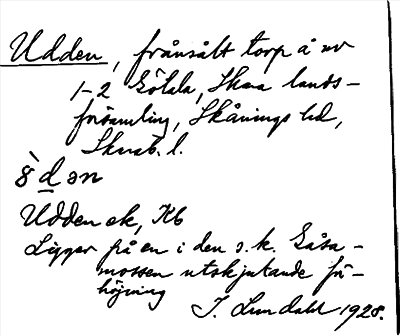 Udden, frånsålt torp å nr
1-2 Götala, Skara lands-
församling, Skånings hd,
Skarab. l.
ù̀dən
Udden ek, Kb
Ligger på en i den s. k. Gåsa-
mossen utskjutande för-
höjning
J. Lundahl 1928.